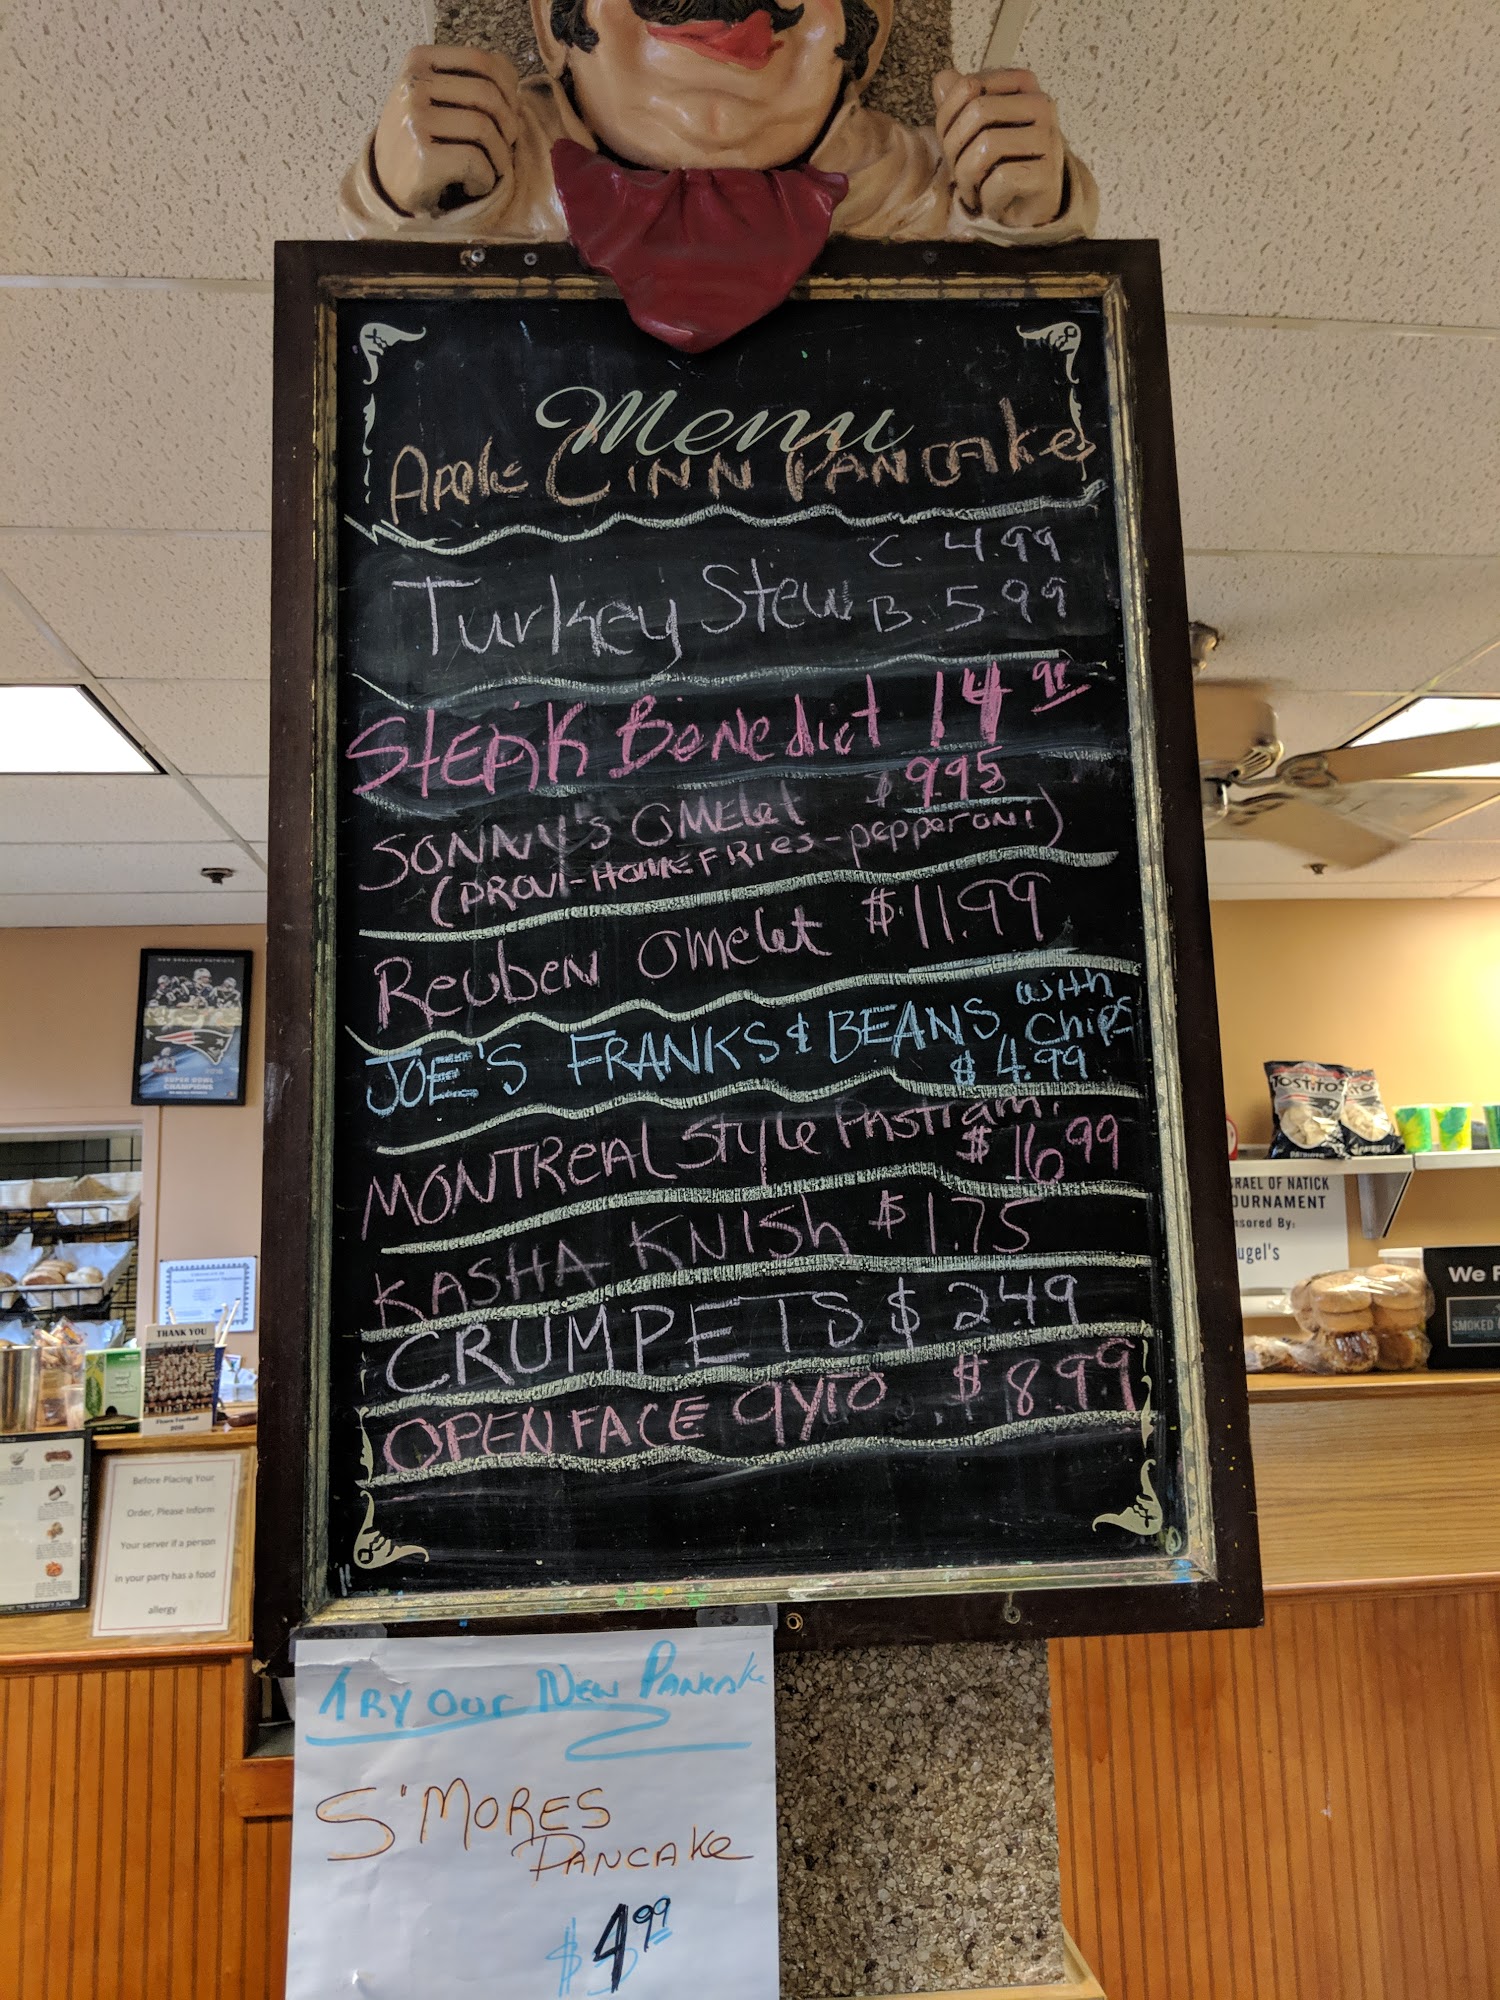 Menu
Apple Cinn Pancakes
Turkey Stew C. 4.99
B. 5.99
Steak Benedict 14
Sonny's Omelet $9.95
(Provi-Homefries-pepperoni)
Reuben Omelet $11.99
JOE'S FRANKS & BEANS with
Chips
$4.99
MONTREAL Style Pastrami
$16.99
KASHA KNISH $1.75
CRUMPETS $2.49
OPEN FACE gyro $8.99
Try Our New Pancake
S'MORES
PANCAKE
$4.99
NEW ENGLAND PATRIOTS
SUPER BOWL
CHAMPIONS
THANK YOU
Before Placing Your
Order, Please Inform
Your server if a person
in your party has a food
allergy
TOSTITOS
SRAEL OF NATICK
OURNAMENT
nsored By:
ugel's
We
SMOKED